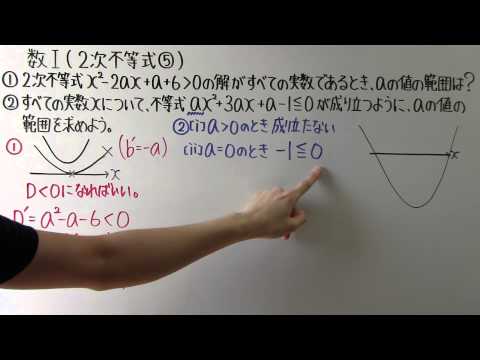 数Ⅰ(2次不等式⑤)
①2次不等式x²-2ax+a+6>0の解がすべての実数であるとき、aの値の範囲は?
②すべての実数xについて、不等式ax²+3ax+a-1≦0が成り立つように、aの値の
範囲を求めよう。
①
x
(b'=-a)
D<0になればいい。
D'=a²-a-6<0
②(i)a>0のとき成り立たない
(ii)a=0のとき -1≦0
x